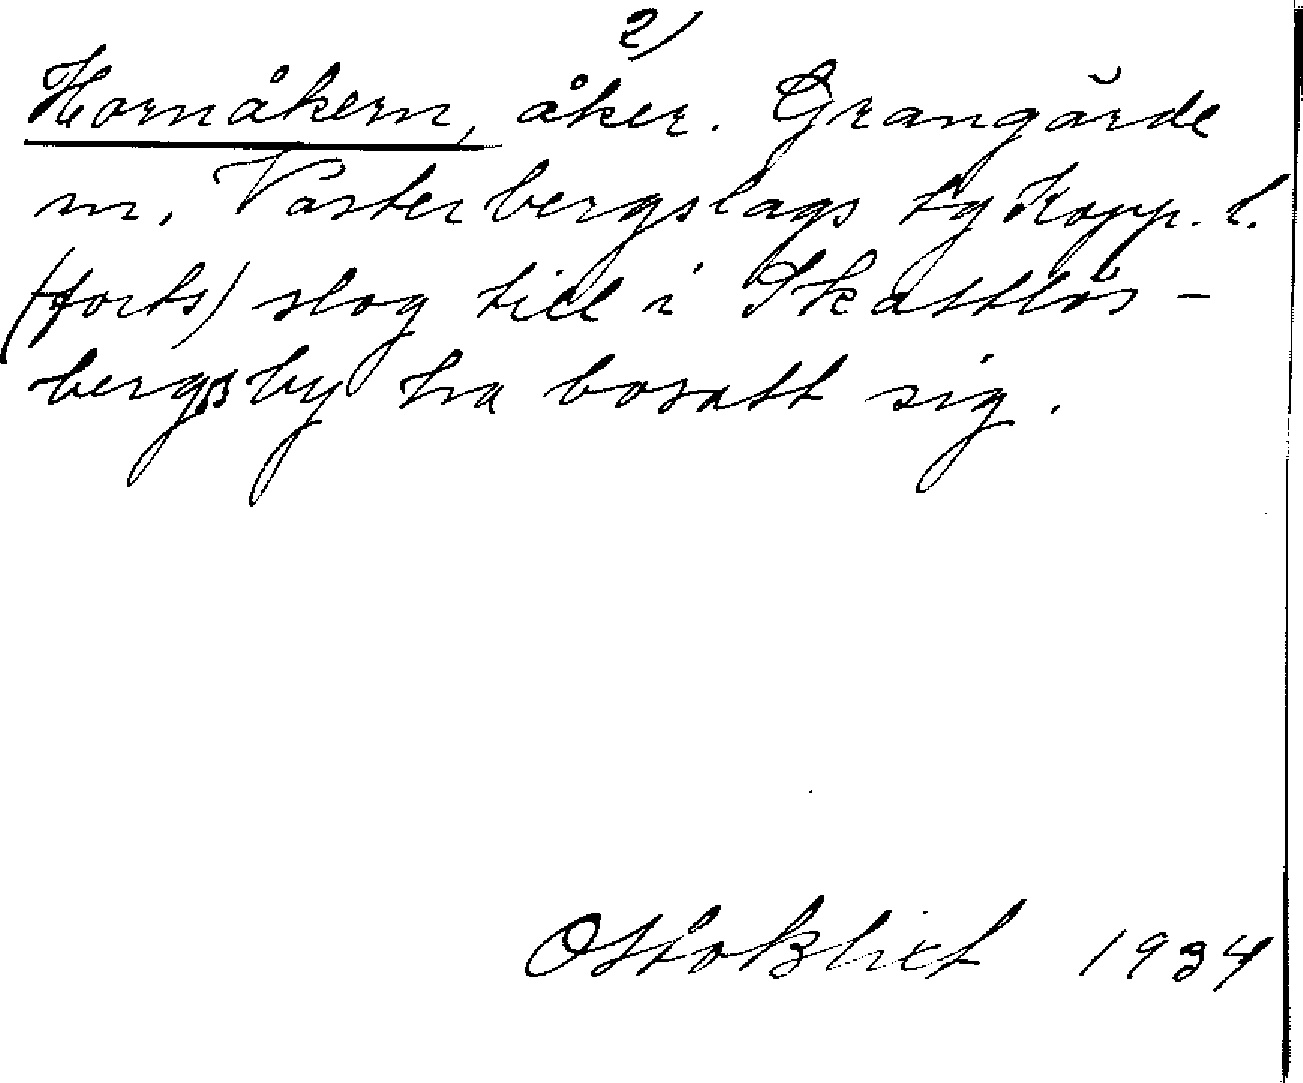 2)
Hornåkern, åker. Grangärde
m, Västerbergslags tg Kopp. l.
(forts) slog till i Skattlös-
bergsby ha bosatt sig.
Otto Blixt 1934